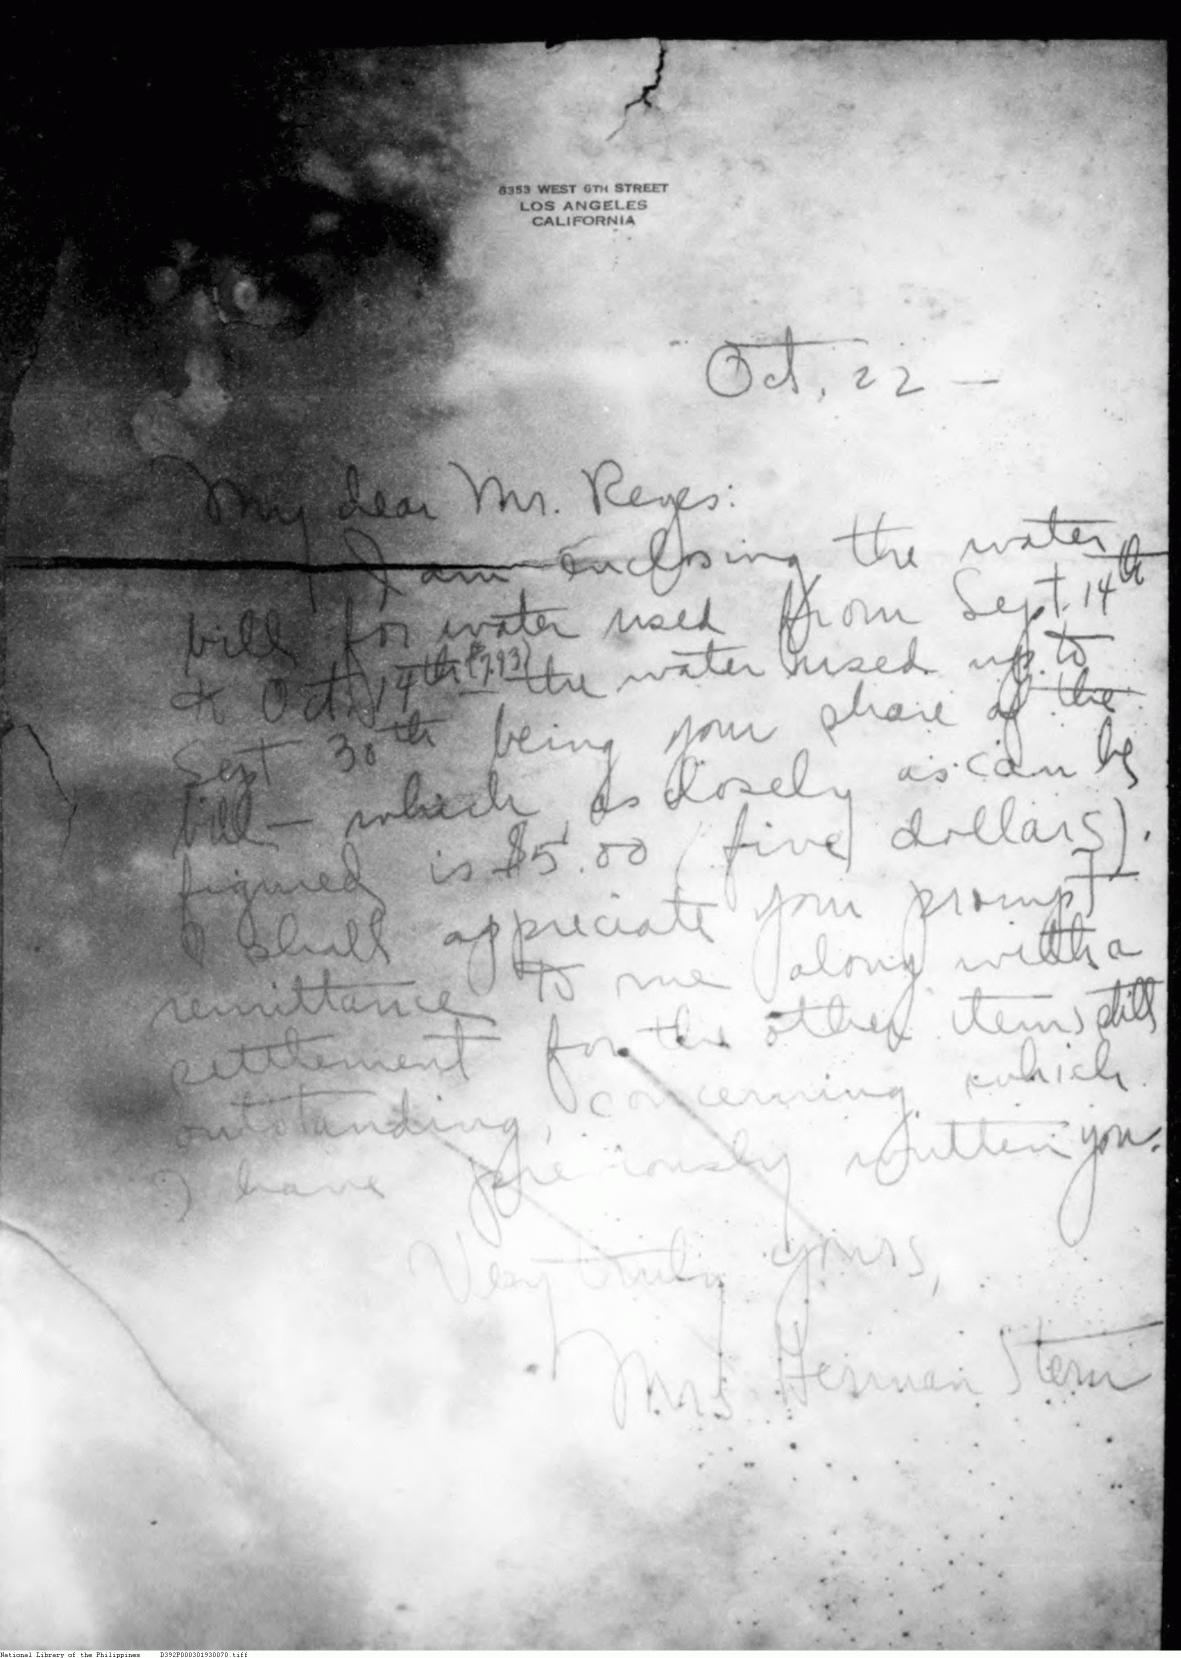 6353 WEST 6TH STREET
LOS ANGELES
CALIFORNIA
Oct. 22 —
My dear Mr. Reyes:
I am enclosing the water
bill for water used from Sept. 14th
to Oct. 14th ($7.93) — the water used up to
Sept 30th being your share of the
bill — which, as closely as can be
figured is $5.00 (five dollars).
I shall appreciate your prompt
remittance to me along with a
settlement for the other items still
outstanding, concerning which
I have previously written you.
Very truly yours,
Mrs Herman Stern
National Library of the Philippines D392P000301930070.tiff